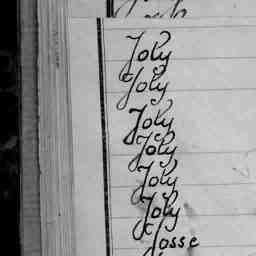 Joly
Joly
Joly
Joly
Joly
Joly
Josse